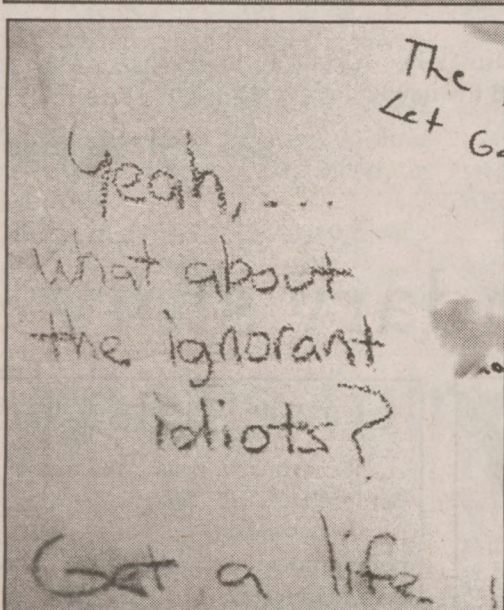 The
Let
Yeah, ....
What about
the ignorant
idiots?
Get a life